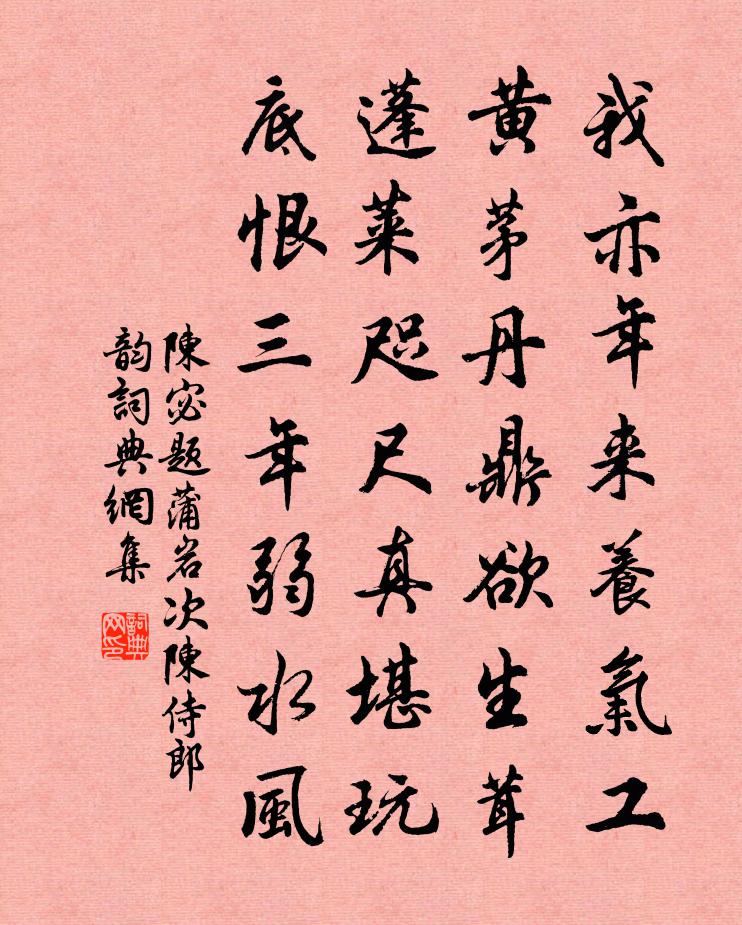 我亦年来養氣工
黄茅丹鼎欲生茸
蓬萊咫尺真堪玩
底恨三年弱水風
陳宓題蒲岩次陳侍郎
韵詞典網集
詞典网印